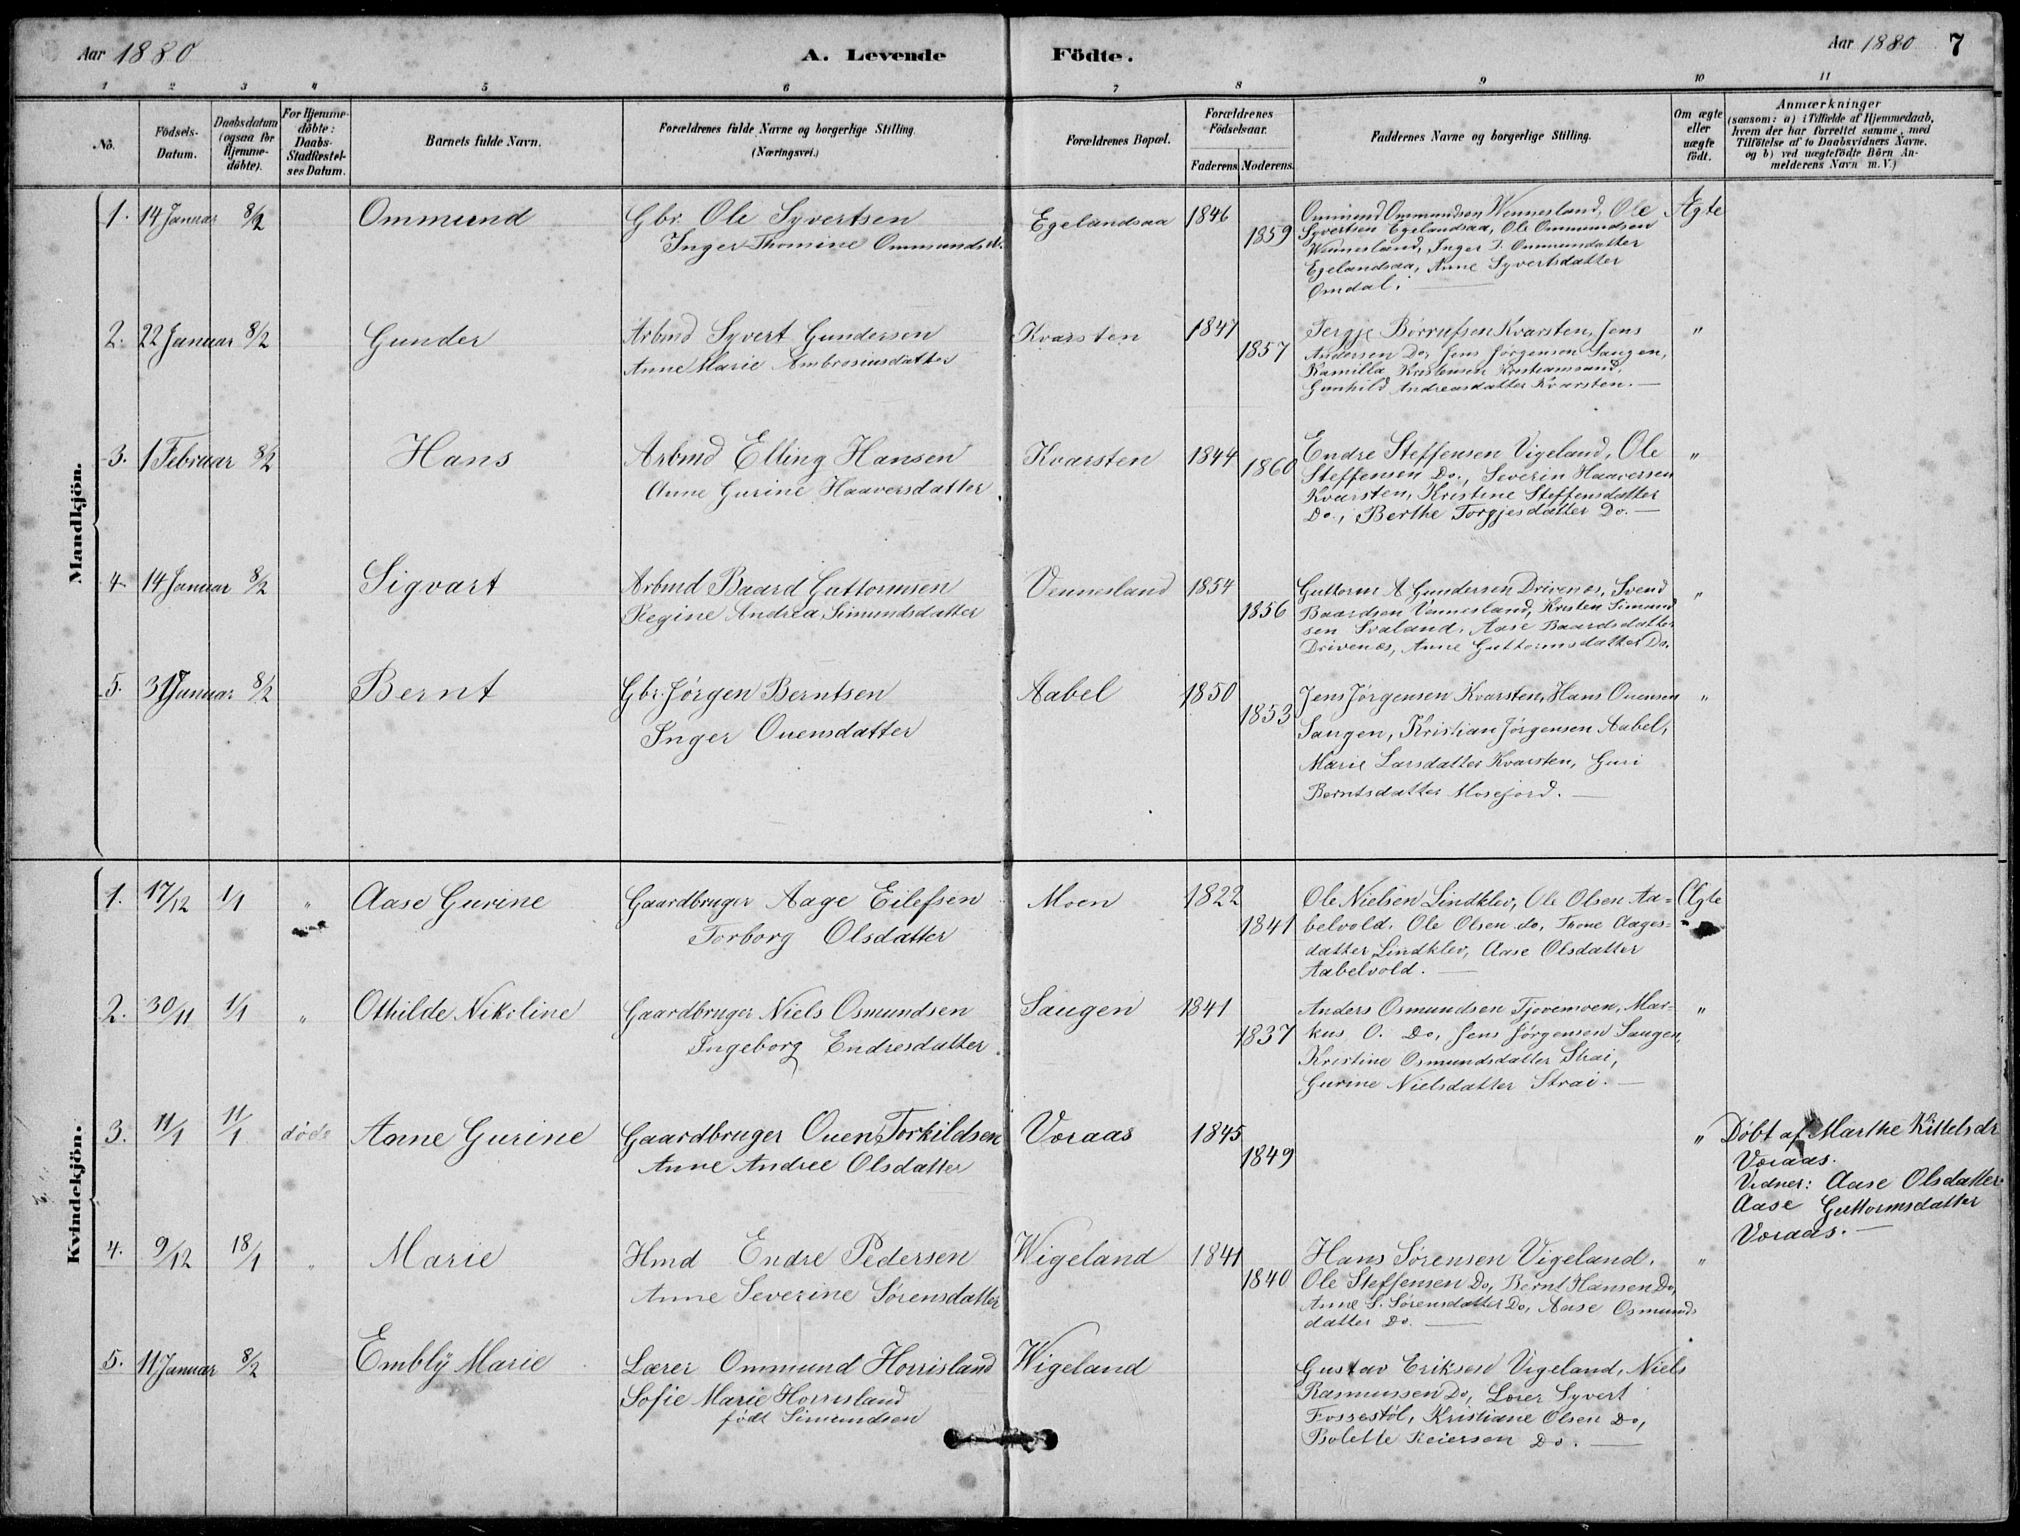 Aar 1880
A. Levende Födte.
Aar 1880 7
1 2 3 4 5 6 7 8 9 10 11
No.
Födsels-Datum.
Daabsdatum (ogsaa for Hjemme-döbte).
For Hjemme-döbte: Daabs-Stadfæstel-ses Datum.
Barnets fulde Navn.
Forældrenes fulde Navne og borgerlige Stilling. (Næringsvei.)
Forældrenes Bopæl.
Forældrenes Födselsaar.
Faderens Moderens
Faddernes Navne og borgerlige Stilling.
Om ægte eller uægte födt.
Anmærkninger
(saasom: a) i Tilfælde af Hjemmedaab,
hvem der har forrettet samme, med
Tilföielse af to Daabsvidners Navne.
og b) ved uægtefödte Börn An-
melderens Navn m. V.)
Mandkjön.
1. 14 Januar 8/2 Ommund Gbr. Ole Syvertsen Egelandsaa 1846 Ommund Ommundsen Wennesland, Ole Ægte
Inger Thomine Ommundsdt. 1859 Syvertsen Egelandsaa, Ole Ommundsen
Wennesland, Inger T. Ommundatter
Egelandsaa, Anne Syvertsdatter
Omdal.
2. 22 Januar 8/2 Gunder Arbmd Syvert Gundersen Kvarsten 1847 Tergje Børrufsen Kvarsten, Jens "
Anne Marie Ambrosiusdatter 1857 Andersen Do, Jens Jørgensen Saugen,
Kamilla Kristensen Kristiansand,
Gunhild Andreasdatter Kvarsten. —
3. 1 Februar 8/2 Hans Arbmd Elling Hansen Kvarsten 1844 Endre Steffensen Vigeland, Ole "
Anne Gurine Haaversdatter 1860 Steffensen Do., Severin Haaversen
Kvarsten, Kristine Steffensdatter
Do., Berthe Torgjesdatter Do. —
4. 14 Januar 8/2 Sigvart Arbmd Baard Guttormsen Vennesland 1854 Guttorm A Gundersen Drivenes, Svend "
Regine Andrea Simundsdatter 1856 Baardsen Vennesland, Kristen Simund
sen Svaland, Aase Baardsdatter
Drivenes, Anne Guttormsdatter Do.
5. 31 Januar 8/2 Bernt Gbr. Jørgen Berntsen Aabel 1850 Jens Jørgensen Kvarsten, Hans Ouensen "
Inger Ouensdatter 1853 Saugen, Kristian Jørgensen Aabel,
Marie Larsdatter Kvarsten, Guri
Berntsdatter Mosefjord. —
Kvindekjön.
1. 17/12 1/1 " Aase Gurine Gaardbruger Aage Eilefsen Moen 1822 Ole Nielsen Lindklev, Ole Olsen Aa= Ægte
Torborg Olsdatter 1841 belvold, Ole Olsen do, Tone Aages=
datter Lindklev, Aase Olsdatter
Aabelvold. —
2. 30/11 1/1 " Othilde Nikoline Gaardbruger Niels Osmundsen Saugen 1841 Anders Osmundsen Tjovemoen, Mar- "
Ingeborg Endresdatter 1837 kus O. Do, Jens Jørgensen Saugen,
Kristine Osmundsdatter Strai,
Gurine Nielsdatter Strai. —
3. 11/1 11/1 døde Anne Gurine Gaardbruger Ouen Torkildsen Voraas 1845 " Døbt af Marthe Kittelsdr
Anne Andree Olsdatter 1849 Voraas.
Vidner: Aase Olsdatter
Aase Guttormsdatter
Voraas. —
4. 9/12 18/1 " Marie Hmd Endre Pedersen Wigeland 1841 Hans Sørensen Vigeland, "
Anne Severine Sørensdatter 1840 Ole Steffensen Do, Bernt Hansen Do,
Anne S. Sørensdatter Do, Aase Osmunds
datter Do. —
5. 11 Januar 8/2 Emblÿ Marie Lærer Ommund Horrisland Wigeland Gustav Eriksen Vigeland, Niels
Sofie Marie Horrisland Rasmussen Do, Lærer Syvert
født Simundsen Fossestøl, Kristiane Olsen Do,
Bolette Reiersen Do. —